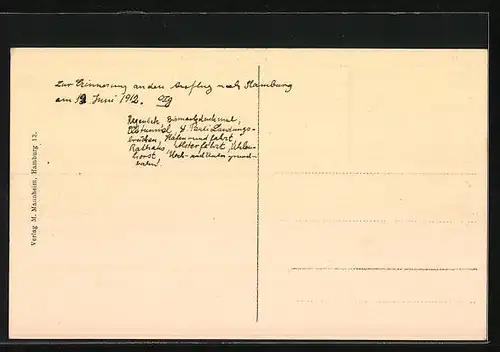 Zur Erinnerung an den Ausflug nach Hamburg
am 12 Juni 1912.
Bismarckdenkmal,
Elbtunnel, St. Pauli Landungs-
brücken, Hafenrundfahrt,
Rathaus, Alsterfahrt, Uhlen-
horst, Hoch- und Untergrund-
bahn.
Verlag M. Mannheim, Hamburg 12.